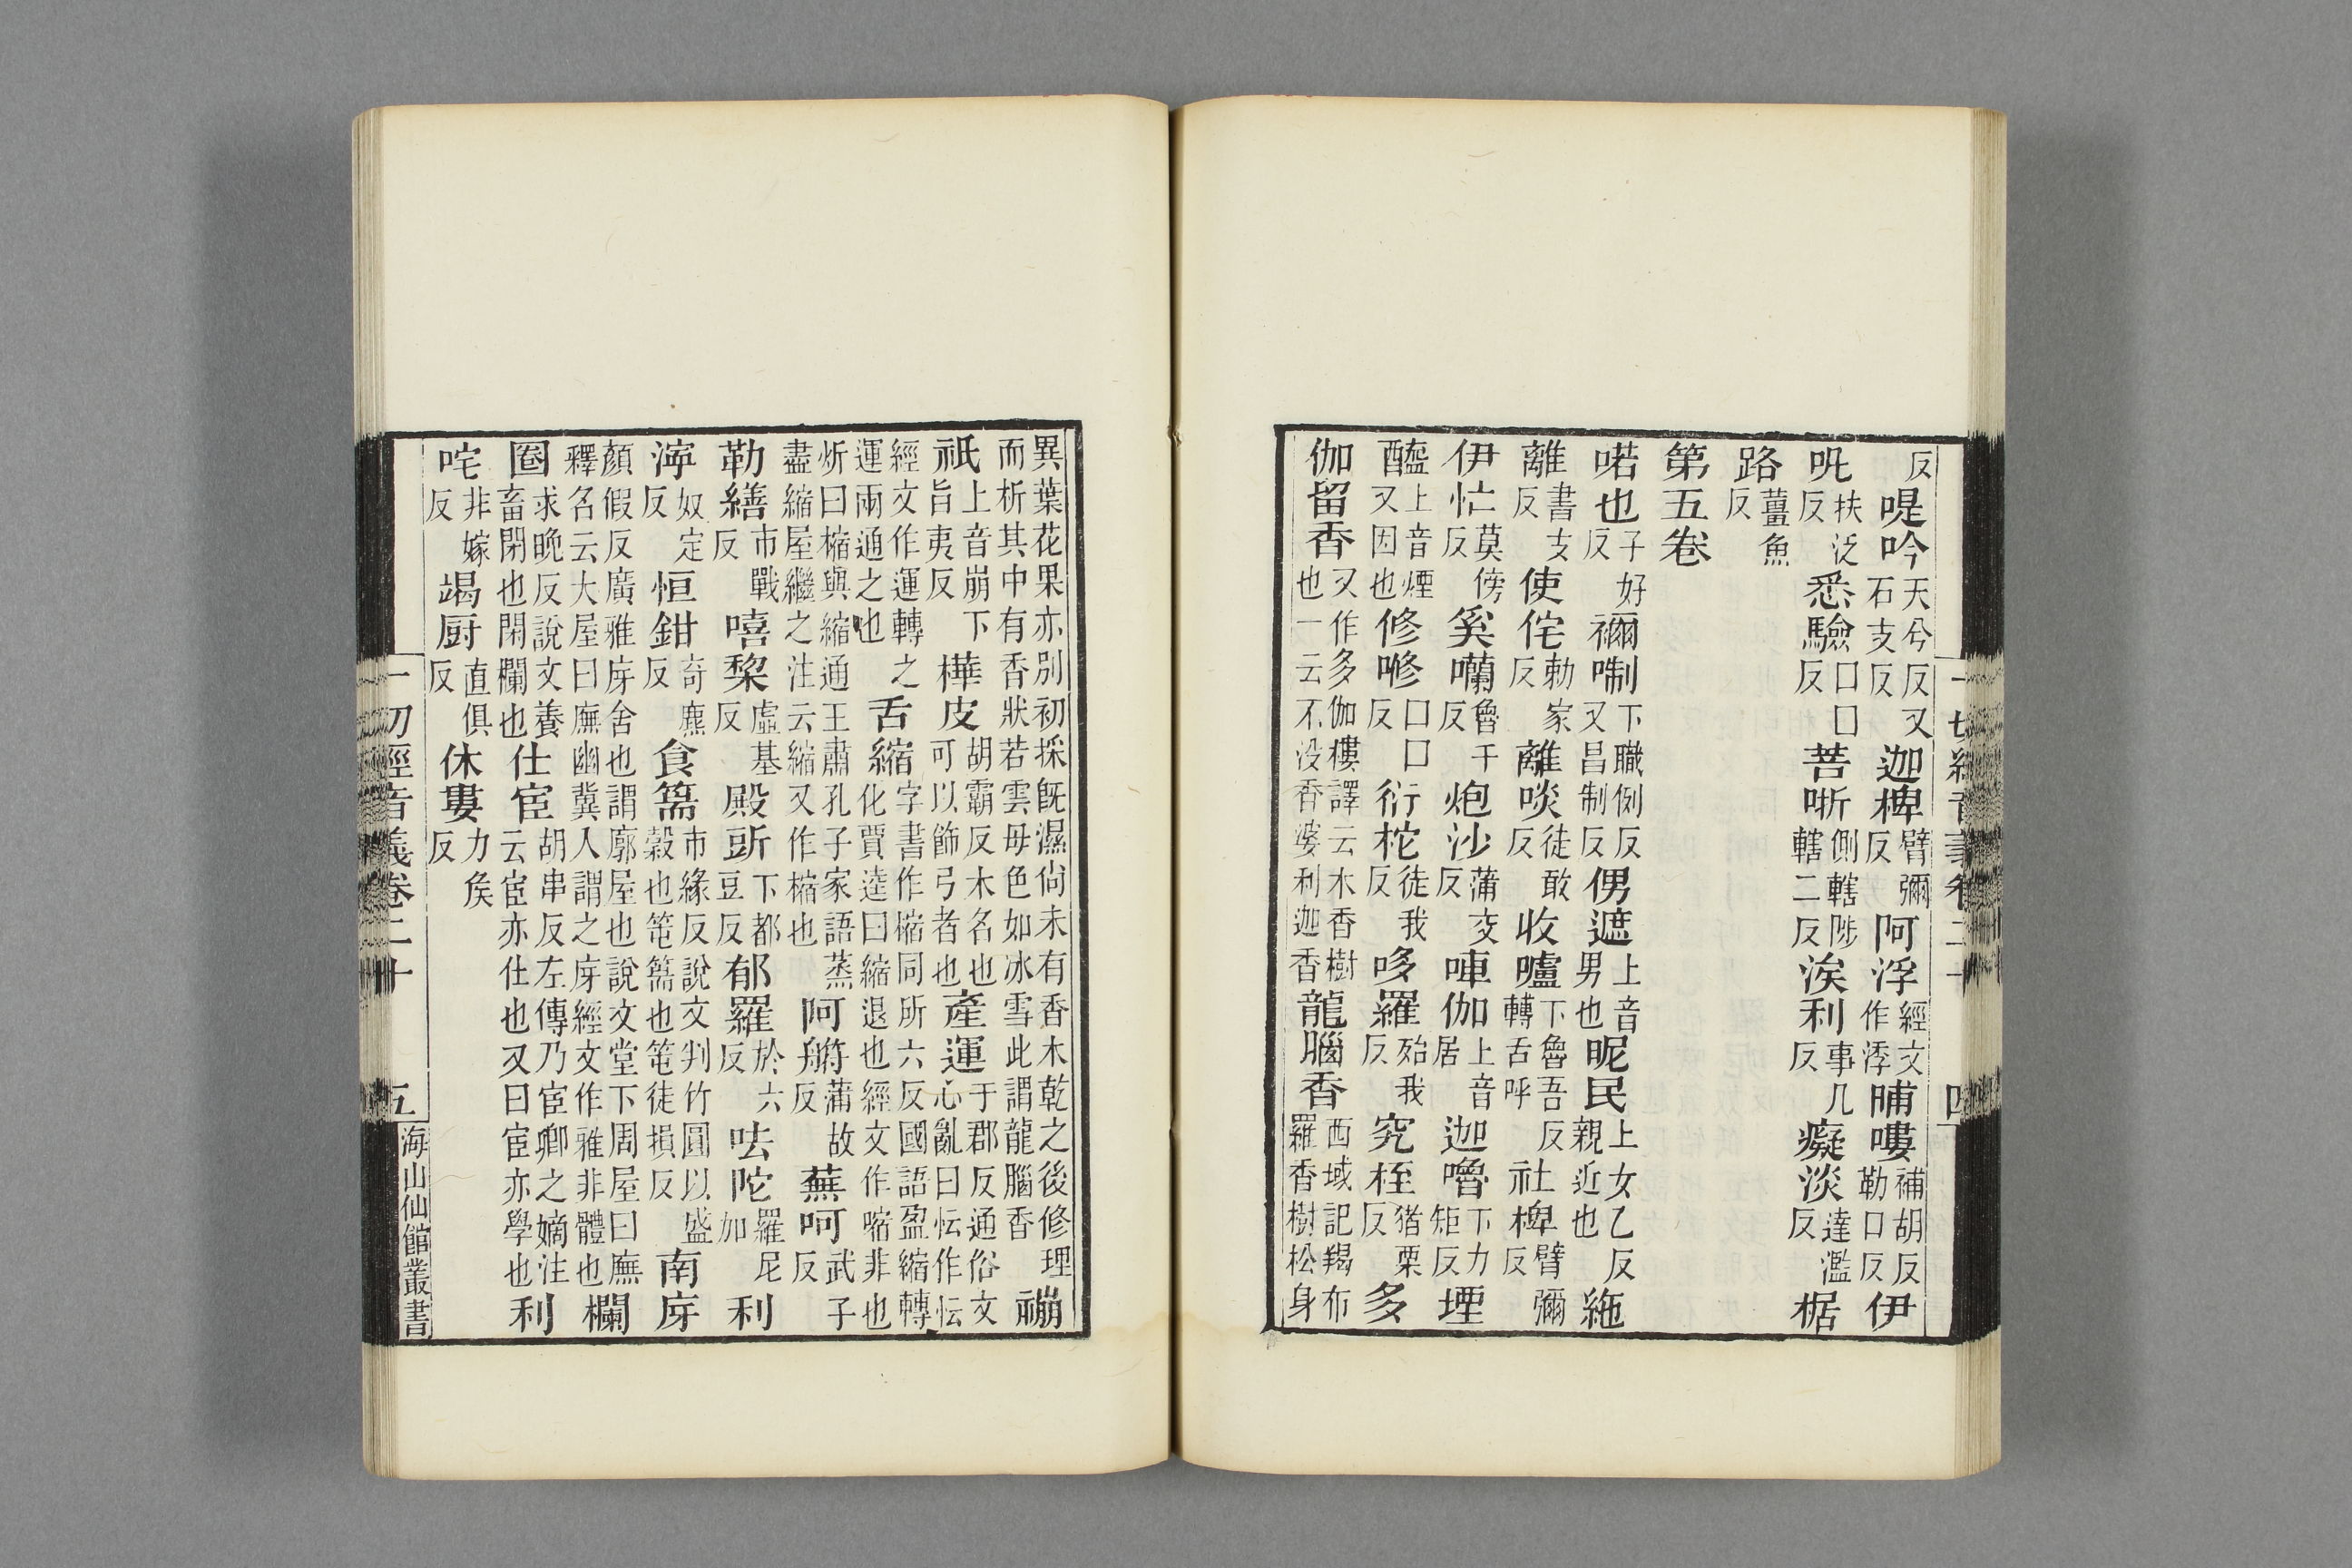 反
喔吟天兮反又石支反迦椑臂彌反阿浮經文作㴋晡嘍補胡反勒口反伊
吪扶泛反悉驗口口反菩哳側轄陟轄二反涘利事几反癡淡達濫反椐
路薑魚反
第五卷
喏也子好反禰㗌下職例反又昌制反侽遮上音男也昵民上女乙反親近也絁
離書支反使侘勅家反離啖徒敢反收嚧下魯吾反轉舌呼社椑臂彌反
伊忙莫傍反奚囒魯干反炮沙蒲交反唓伽上音居迦嚕下力矩反堙
醯上音煙又因也修㗛口口反衍柁徒我反哆羅殆我反究桎猪栗反多
伽留香又作多伽樓譯云木香樹也一云不没香婆利迦香龍腦香西域記羯布羅香樹松身
一切經音義卷二十
四
異葉花果亦別初採既濕尙未有香木乾之後修理而析其中有香狀若雲母色如冰雪此謂龍腦香䙖
祇上音崩下旨夷反樺皮胡霸反木名也可以飾弓者也產運于郡反通俗文心亂曰忶作忶
經文作運轉之運兩通之也舌縮字書作樎同所六反國語盈縮轉化賈逵曰縮退也經文作嘧非也
炘曰樎與縮通王肅孔子家語蒸盡縮屋繼之注云縮又作樎也阿䑧蒲故反蕪呵武子反
勒繕市戰反嘻棃虛基反殿䇺下都豆反郁羅於六反呿陀羅尼加利
濘奴定反恒鉗奇廘反食篅市緣反說文判竹圓以盛穀也篅也䇬徒損反南庌
顏假反廣雅庌舍也謂廓屋也說文堂下周屋曰廡釋名云大屋曰廡幽冀人謂之庌經文作雅非體也欄
圈求晚反說文養畜閑也閑欄也仕宦胡串反左傳乃宦卿之嫡注云宦亦仕也又曰宦亦學也利
咤非嫁反竭厨直俱反休婁力矦反
一切經音義卷二十
五
海山仙館叢書